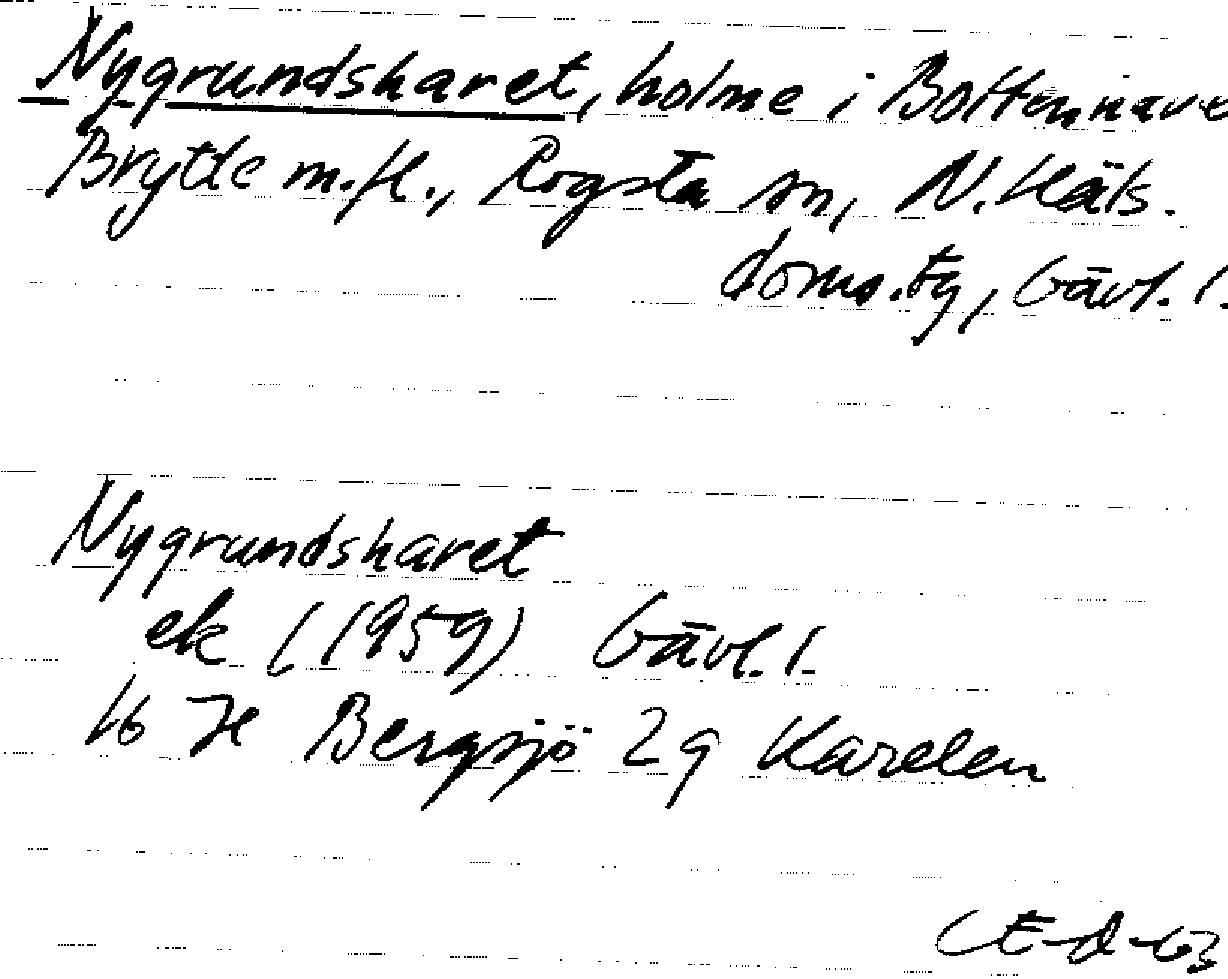 Nygrundsharet, holme i Bottenhave
Brytte m.fl., Rogsta sn, N. Häls.
doms.tg, Gävl. l.
Nygrundsharet
ek (1959) Gävl. l.
16 H Bergsjö 2g Karelen